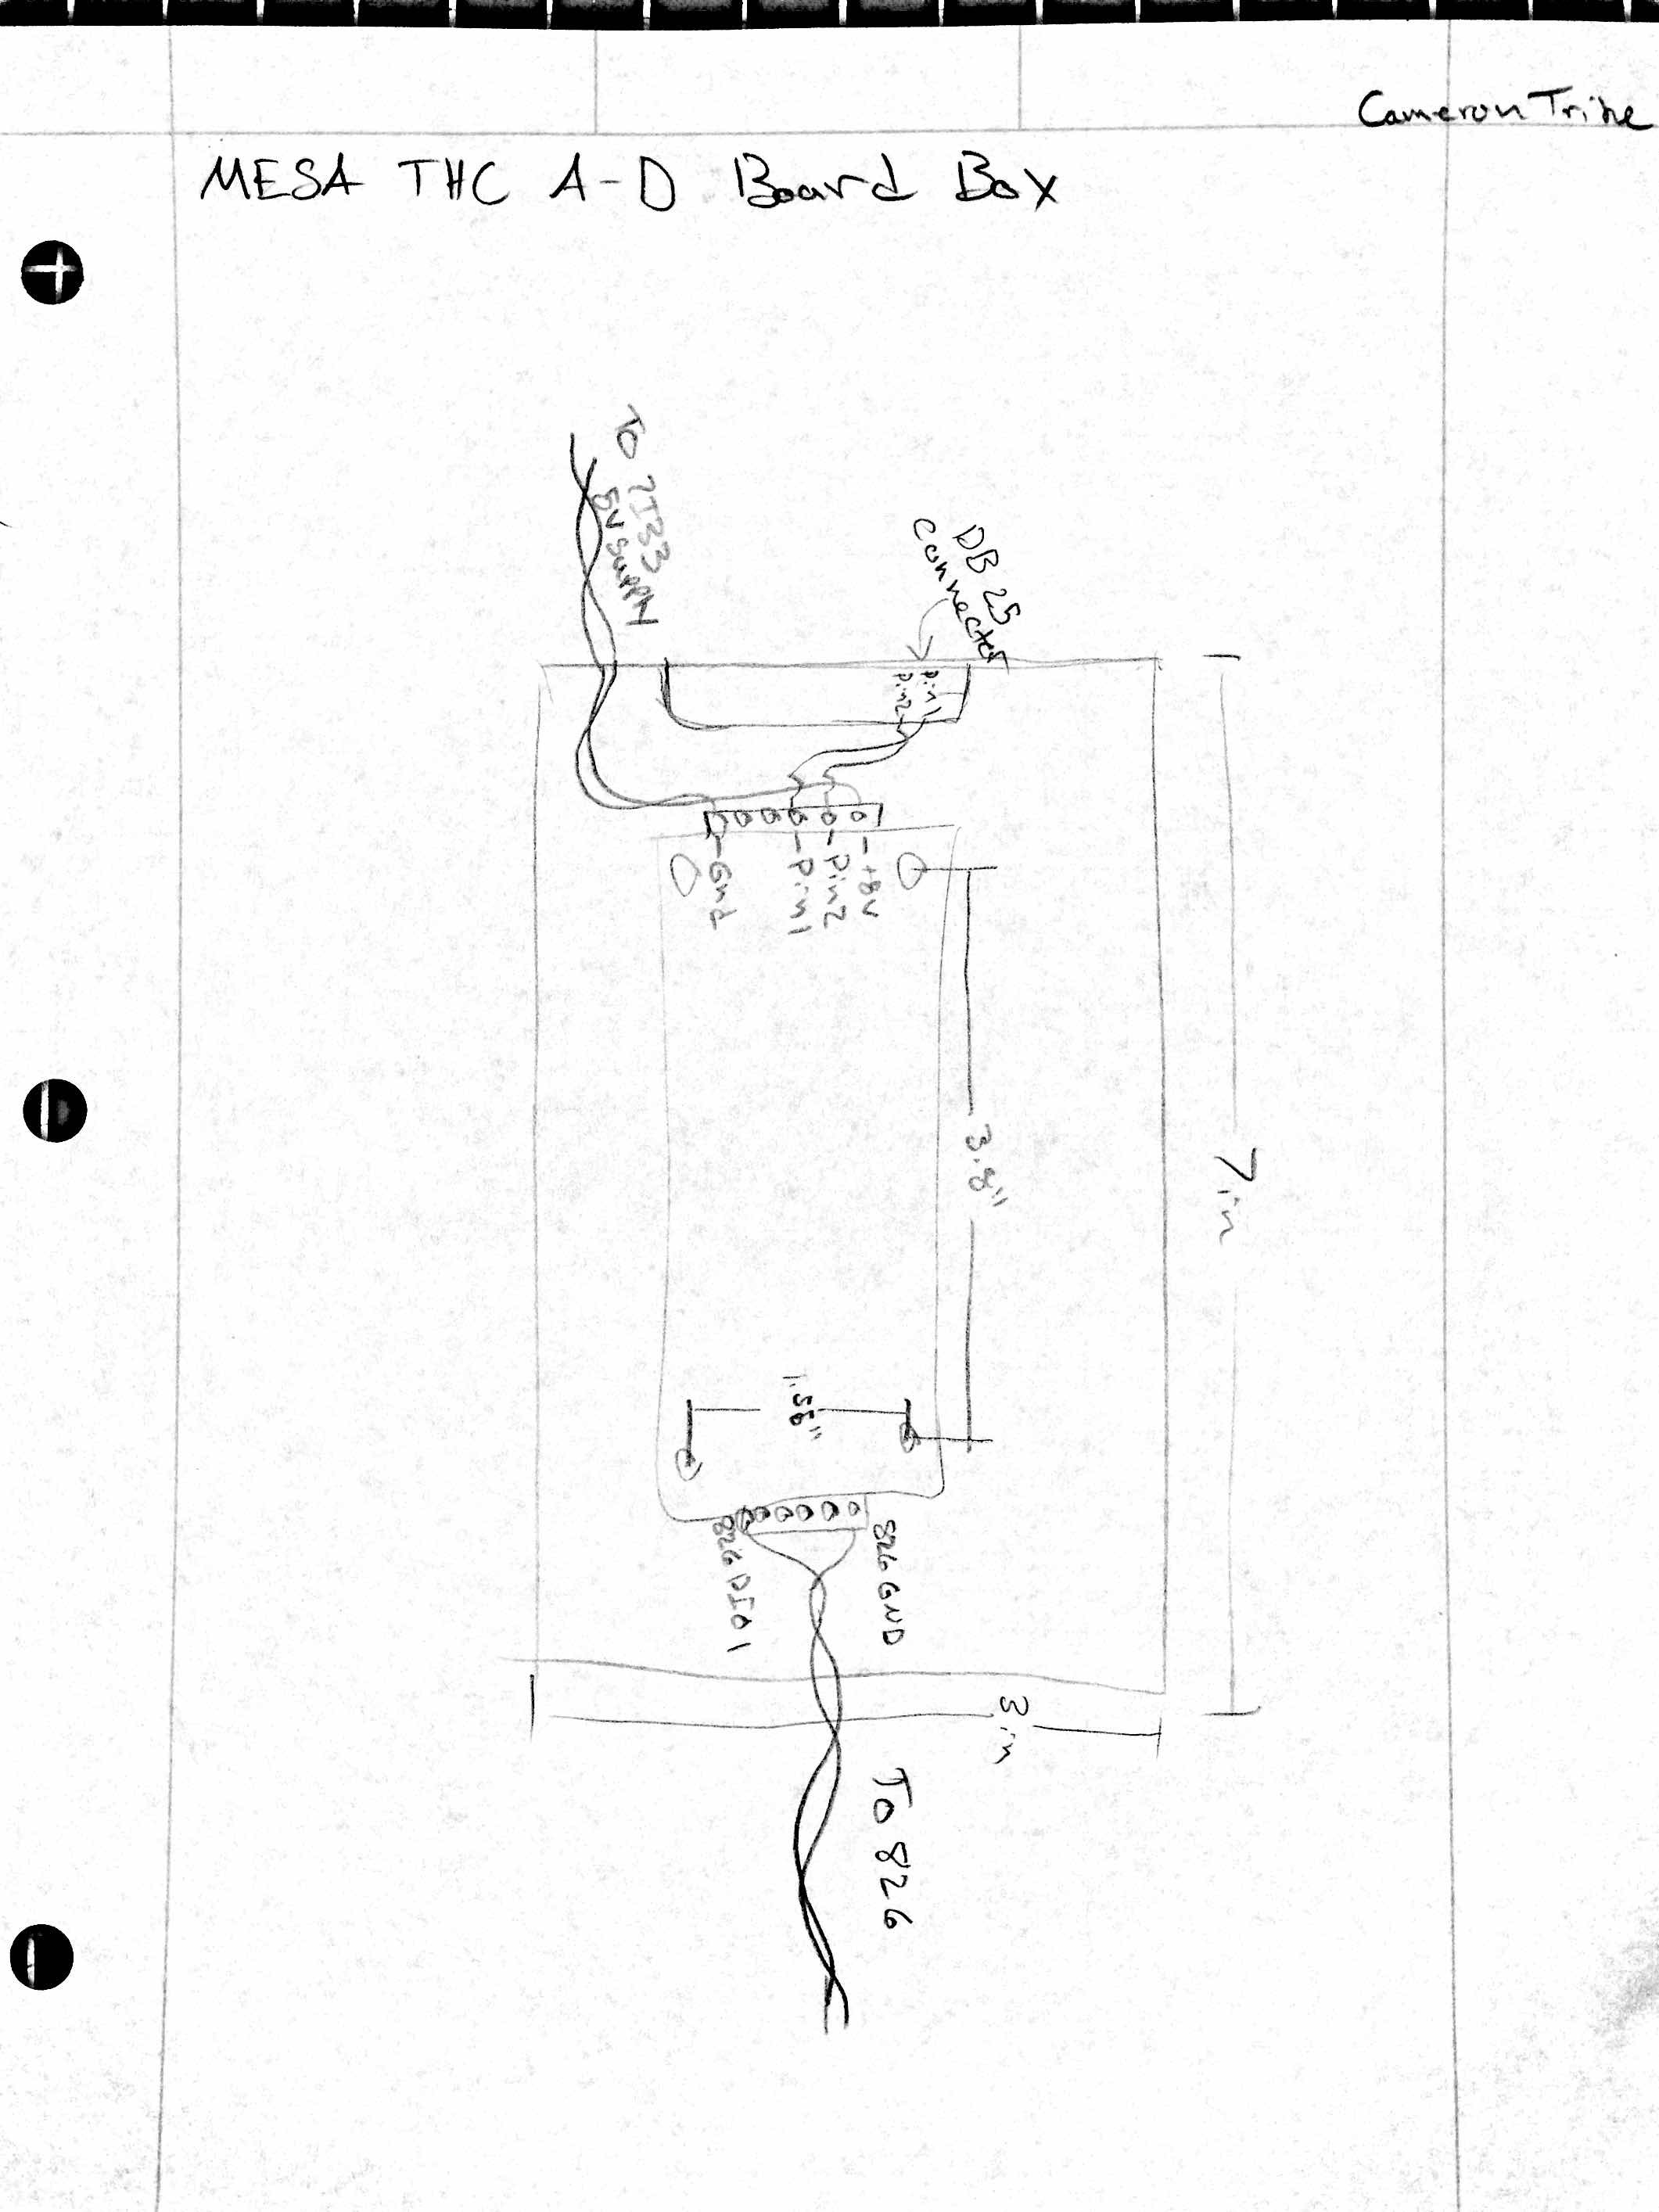 Cameron Tribe
MESA THC A-D Board Box
To 7I33
5V Supply
DB 25
connecter
Pin 1
Pin 2
+8V
-Pin2
-Pin1
-Gnd
3.8"
7in
1.58"
826 GND
826 DIO1
3in
To 826